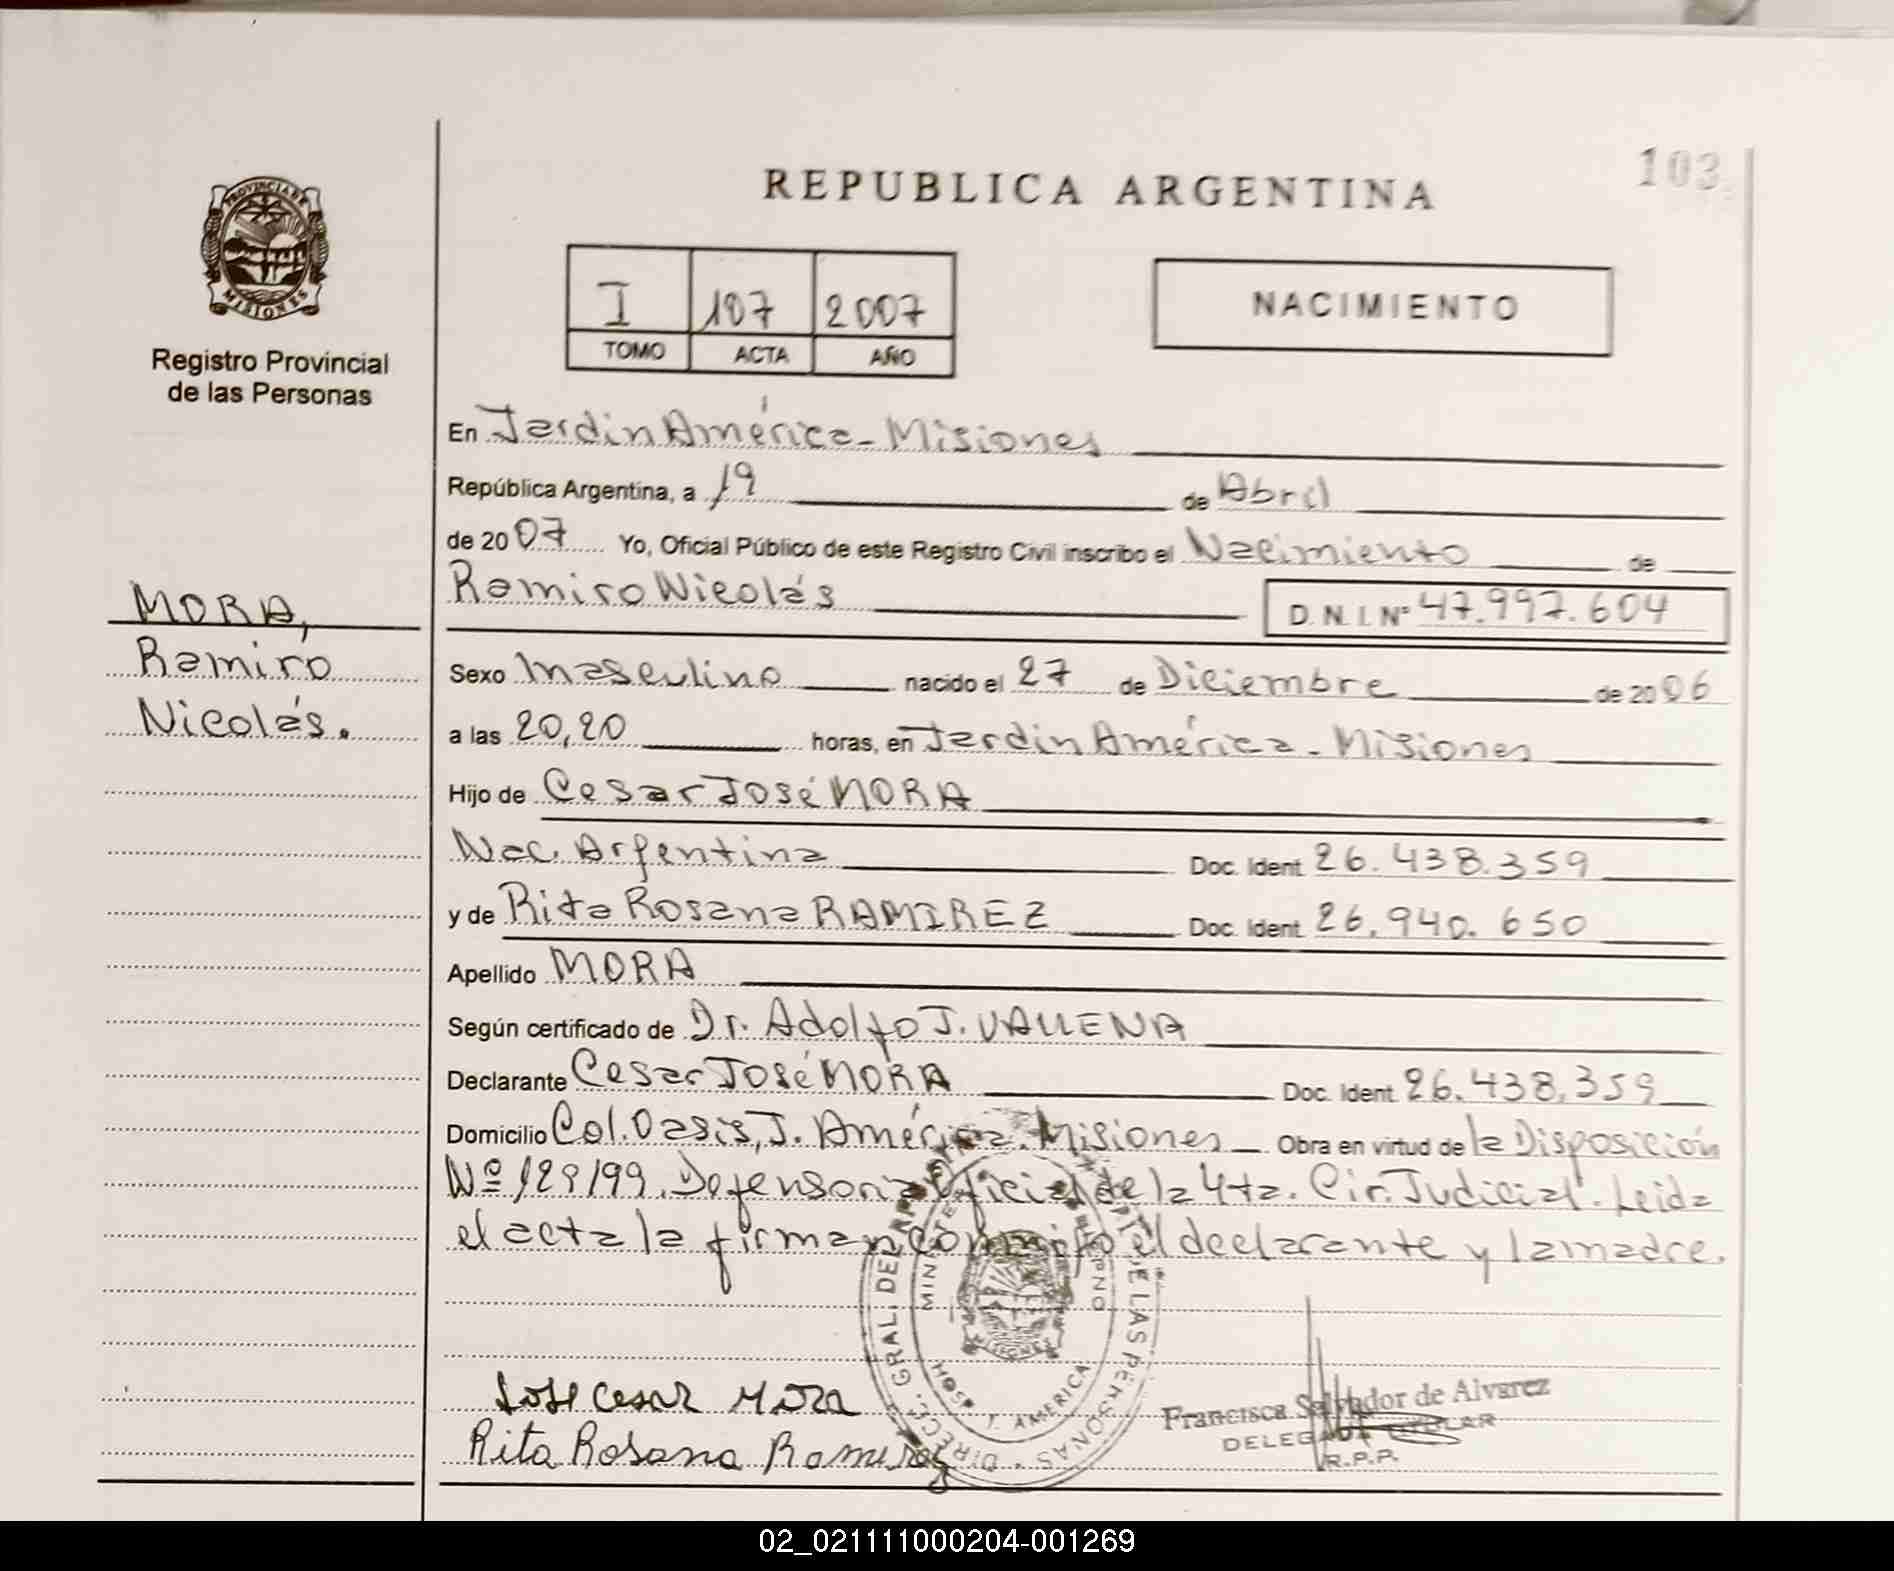 103
REPUBLICA ARGENTINA
PROVINCIA DE
MISIONES
Registro Provincial
de las Personas
I 107 2007
TOMO ACTA AÑO
NACIMIENTO
En Jardin América - Misiones
República Argentina, a 19 de Abril
de 2007 Yo, Oficial Público de este Registro Civil inscribo el Nacimiento de
Ramiro Nicolás D. N. I. Nº 47.997.604
MORA,
Ramiro
Nicolás.
Sexo masculino nacido el 27 de Diciembre de 2006
a las 20,20 horas, en Jardin América - Misiones
Hijo de Cesar José MORA
Nac. Argentina Doc. Ident 26.438.359
y de Rita Rosana RAMIREZ Doc. Ident 26.940.650
Apellido MORA
Según certificado de Dr. Adolfo J. VALLENA
Declarante Cesar José MORA Doc. Ident 26.438.359
Domicilio Col. Oasis, J. América - Misiones Obra en virtud de la Disposición
Nº 129/99. Defensoria Oficial de la 4ta. Cir. Judicial. Leida
el acta la firman conmigo el declarante y la madre.
Jose Cesar Mora
Rita Rosana Ramirez
DIRECC. GRAL. DE LAS PERSONAS
HOSP. J. AMERICA
Francisca Salvador de Alvarez
DELEGADA TITULAR
R.P.P.
02_021111000204-001269